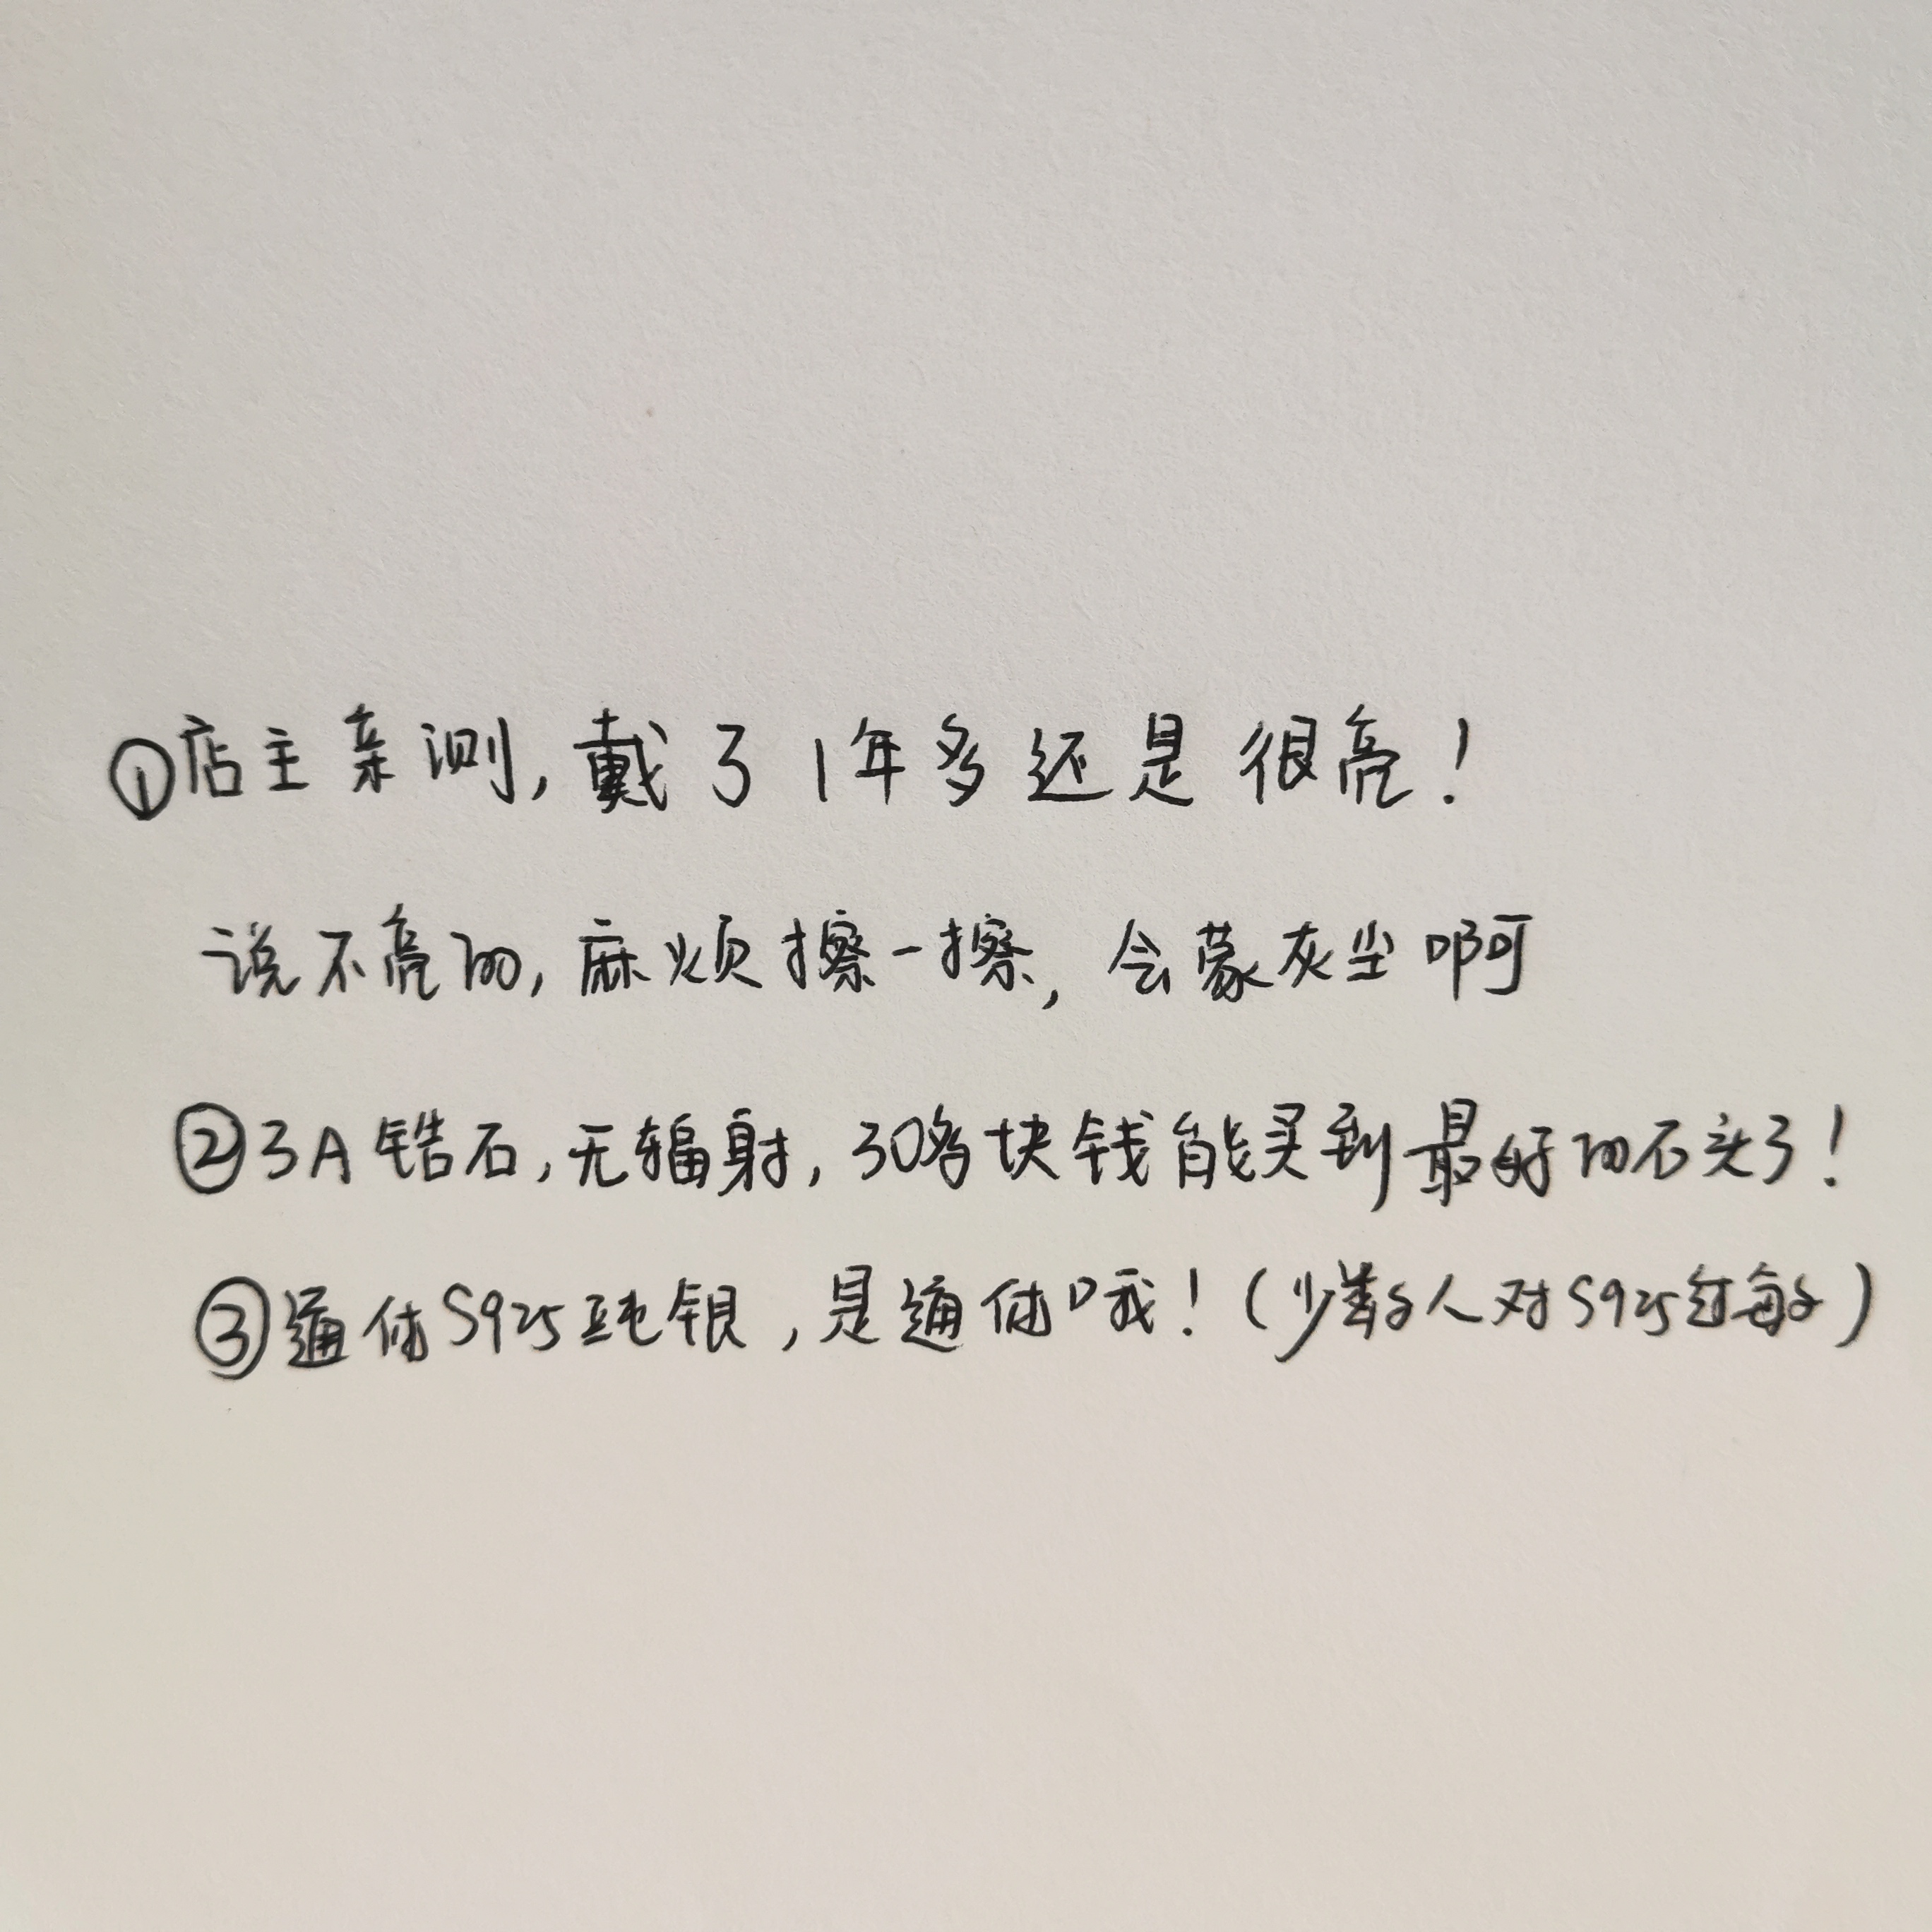 ①店主亲测,戴了1年多还是很亮!
说不亮的,麻烦擦一擦,会蒙灰尘啊
②3A锆石,无辐射,30多块钱能买到最好的石头了!
③通体S925纯银,是通体哦!(少数人对S925过敏)